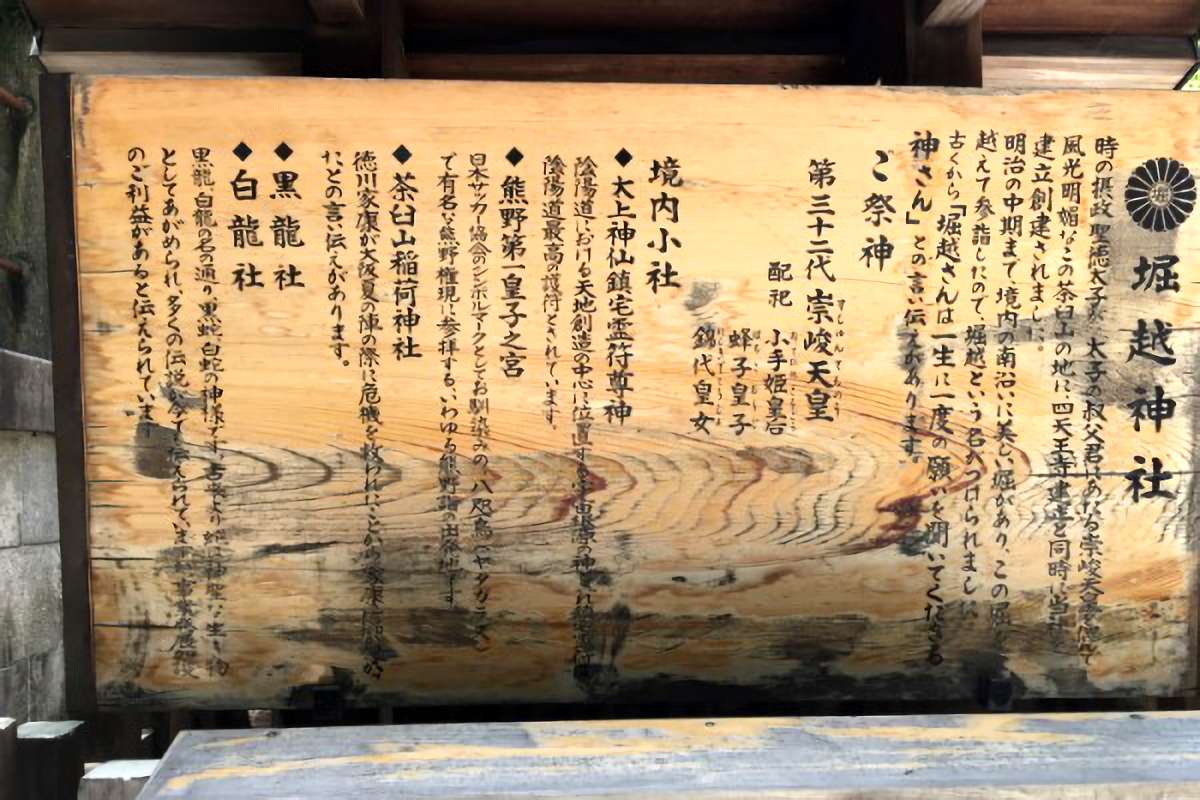 堀越神社
時の摂政聖徳太子が、太子の叔父君にあたる崇峻天皇を偲んで
風光明媚なこの茶臼山の地に、四天王寺建立と同時に
建立創建されました。
明治の中期まで境内の南沿いに美しい堀があり、この堀を
越えて参詣したので、堀越という名がつけられました
古くから「堀越さんは一生に一度の願いを聞いてくださる
神さん」との言い伝えがあります。
ご祭神
第三十二代 崇峻天皇
配祀 小手姫皇后
蜂子皇子
錦代皇女
境内小社
◆太上神仙鎮宅霊符尊神
陰陽道における天地創造の中心に位置する宇宙
陰陽道最高の護符とされています。
◆熊野第一皇子之宮
日本サッカー協会のシンボルマークとしてお馴染みの、八咫烏(ヤタガラス)
で有名な熊野権現に参拝する、いわゆる熊野詣の出発地です
◆茶臼山稲荷神社
徳川家康が大阪夏の陣の際に危機を救われに
たとの言い伝えがあります。
◆黒龍社
◆白龍社
黒龍、白龍の名の通り、黒蛇、白蛇の神様です。古来より蛇は神聖な生き物
としてあがめられ、多くの伝説が今でも伝えられています。事業発展
のご利益があると伝えられています